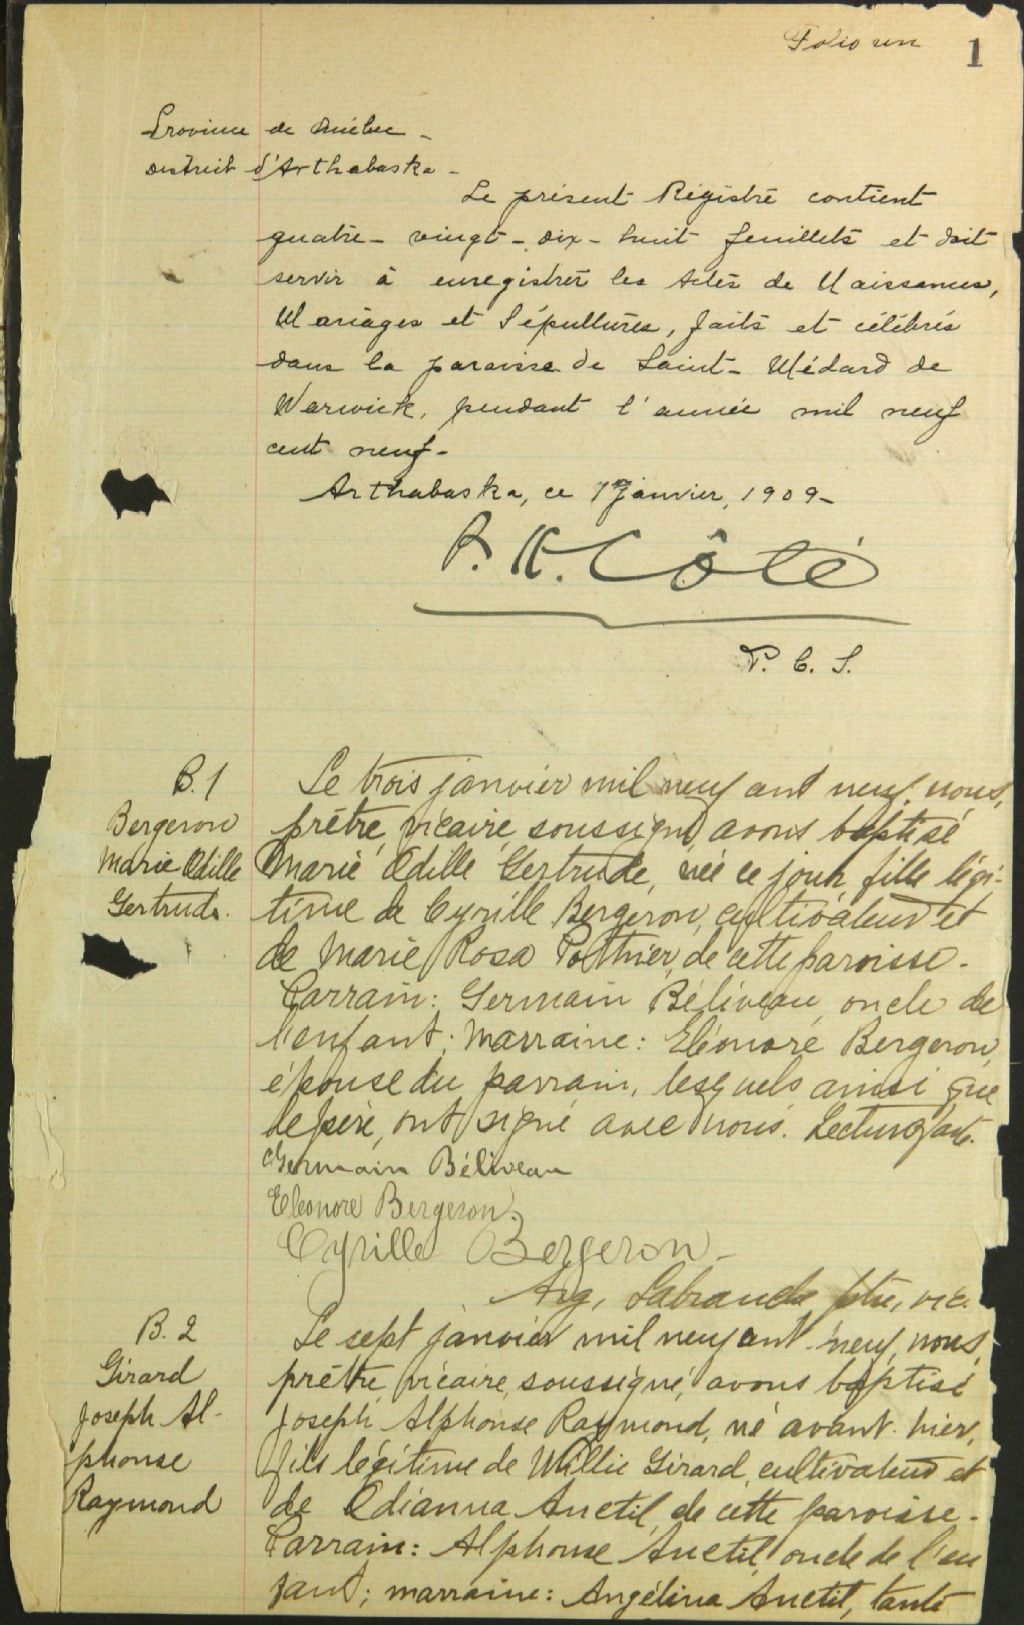 Folio un 1
Province de Québec -
District d'Arthabaska -
Le présent Régistre contient
quatre - vingt - dix - huit feuillets et doit
servir à enregistrer les Actes de Naissances,
Mariages et Sépultures, faits et célébrés
dans la paroisse de Saint - Médard de
Warwick, pendant l'année mil neuf
cent neuf -
Arthabaska, ce Janvier, 1909 -
Côté
P. C. S.
B. 1
Bergeron
Marie Odille
Gertrude.
Le trois janvier mil neuf cent neuf, nous,
prêtre, vicaire, soussigné, avons baptisé
Marie Odille Gertrude, née ce jour, fille légi-
time de Cyrille Bergeron, cultivateur et
de Marie Rosa Pothier, de cette paroisse -
Parrain: Germain Béliveau, oncle de
l'enfant; marraine: Eléonore Bergeron,
épouse du parrain, lesquels ainsi que
le père, ont signé avec nous. Lecture faite.
Germain Béliveau
Eleonore Bergeron
Cyrille Bergeron -
Ptre, vic.
B. 2
Girard
Joseph Al-
phonse
Raymond
Le sept janvier mil neuf cent neuf, nous,
prêtre, vicaire, soussigné, avons baptisé
Joseph Alphonse Raymond, né avant-hier,
fils légitime de Willie Girard, cultivateur et
de Odianna Auctil, de cette paroisse -
Parrain: Alphonse Auctil, oncle de l'en
fant; marraine: Angélina Auctil, tante